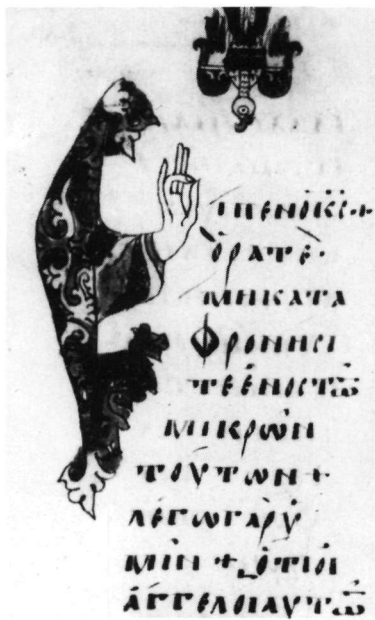 ΕΙΠΕΝΟΚ̅Ϲ̅·+
ὉΡΑΤΕ·
ΜΗΚΑΤΑ
ΦΡΟΝΗϹΙ
ΤΕἙΝΟϹΤΩ̅
ΜΙΚΡῺΝ
ΤΟΎΤΩΝ+
ΛΈΓΩΓᾺΡὙ
ΜΙΝ+ὍΤΙΟἹ
ἌΓΓΕΛΟΙΑΥΤΩ̅